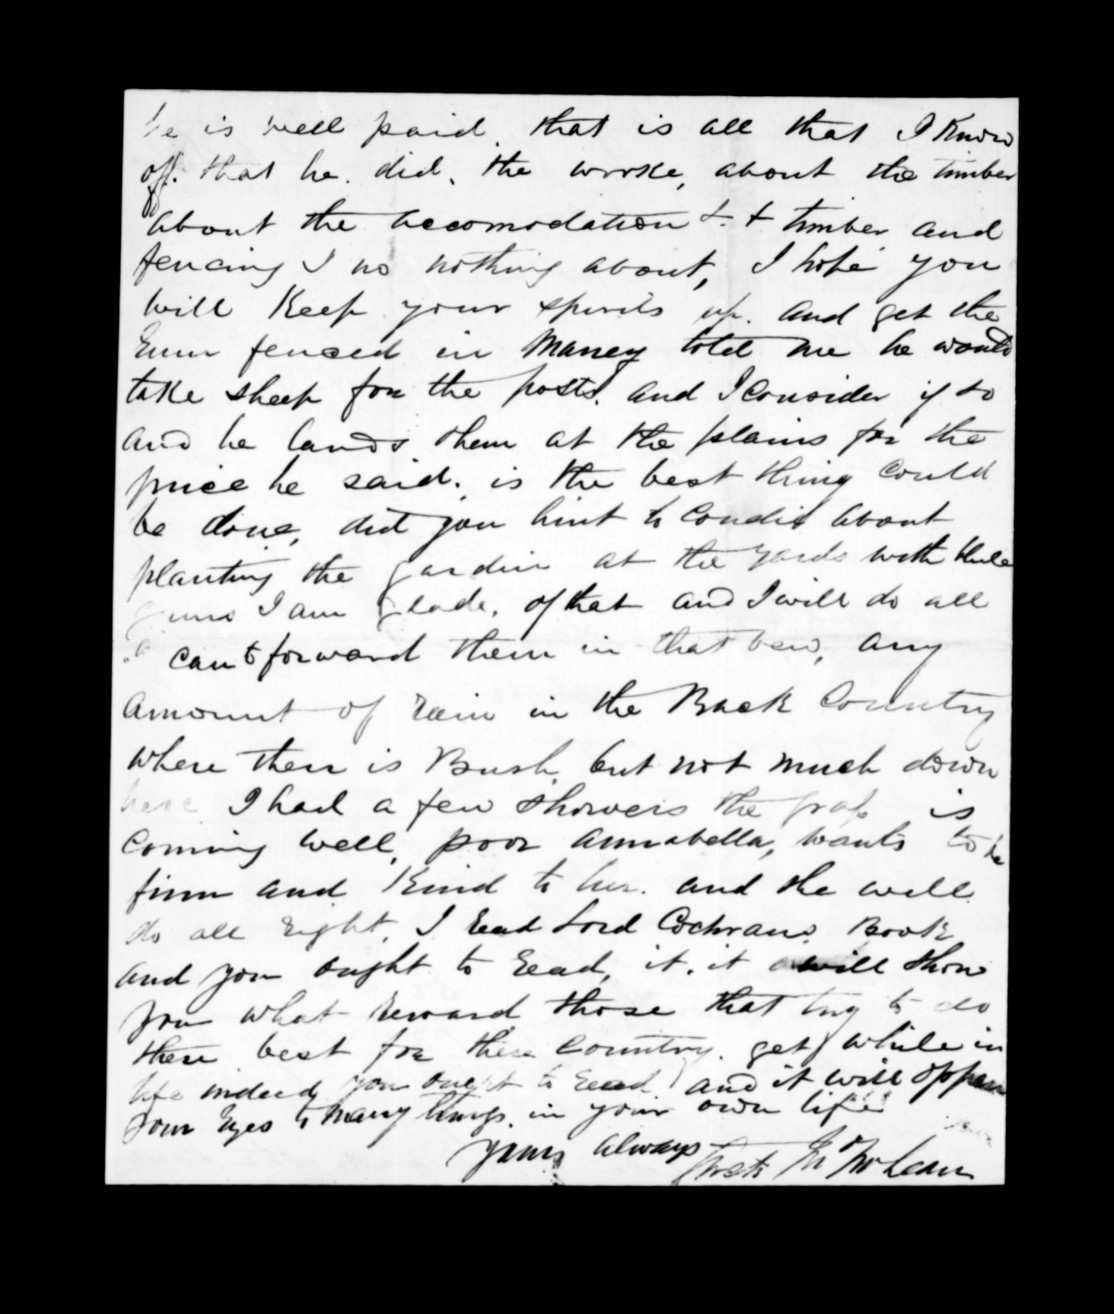 he is well paid. that is all that I Know
off. that he. did. the worke, about the timber
about the accomodation &. & timber and
fencing I no nothing about, I hope you
will Keep your spirits up. and get the
fenced in Maney told me he would
take sheep for the posts. and I Consider if so
and he lands them at the plains for the
price he said. is the best thing Could
be done, did you hint to Condie about
planting the garden at the yards with blue
gums I am glade. of that and I will do all
I can to forward them in that vew, any
amount of rain in the Back Country
where then is Bush but not much down
here I had a few showers the grass is
Coming well, poor Annabella, wants to be
firm and Kind to her. and she will
do all right. I read Lord Cochrans Book
and you ought to read, it. it will show
you what reward those that try to do
there best for there Country. get while in
life indeed you ought to read and it will oppen
your Eyes to many things in your own life
yours always
McLean